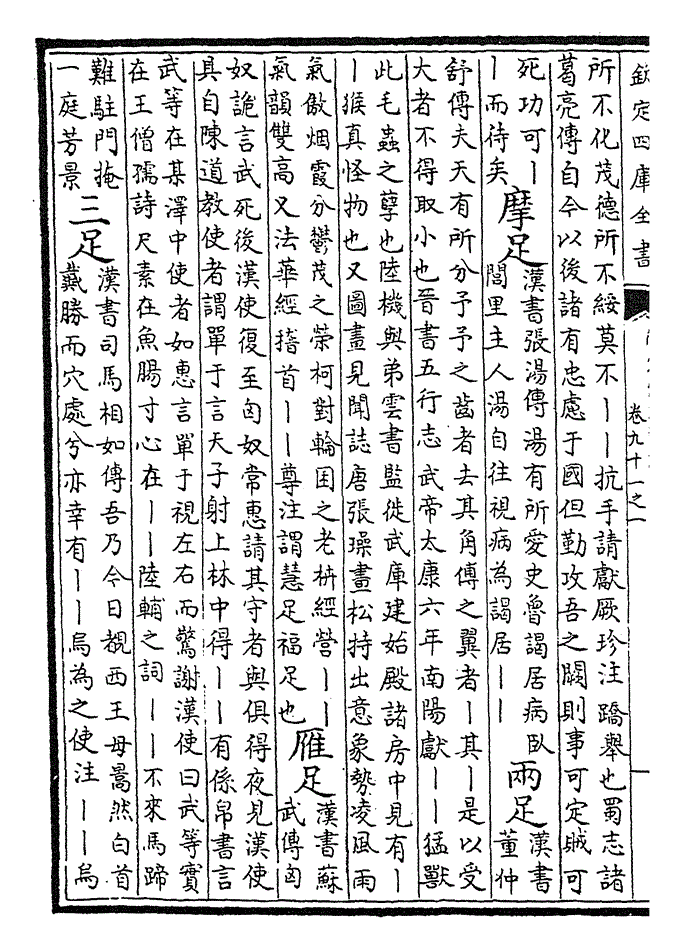 欽定四庫全書
卷九十一之一
所不化茂德所不綏莫不丨丨抗手請獻厥珍注蹻舉也蜀志諸
葛亮傳自今以後諸有忠慮于國但勤攻吾之闕則事可定賊可
死功可丨
丨而待矣
摩足
漢書張湯傳湯有所愛史魯謁居病臥
閭里主人湯自往視病為謁居丨丨
兩足
漢書
董仲
舒傳夫天有所分予予之齒者去其角傅之翼者丨其丨是以受
大者不得取小也晉書五行志武帝太康六年南陽獻丨丨猛獸
此毛蟲之孽也陸機與弟雲書監徙武庫建始殿諸房中見有丨
丨猴真怪物也又圖畫見聞誌唐張璪畫松特出意象勢凌風雨
氣傲烟霞分鬱茂之榮柯對輪囷之老枿經營丨丨
氣韻雙高又法華經稽首丨丨尊注謂慧足福足也
雁足
漢書蘇
武傳匈
奴詭言武死後漢使復至匈奴常惠請其守者與俱得夜見漢使
具自陳道教使者謂單于言天子射上林中得丨丨有係帛書言
武等在某澤中使者如惠言單于視左右而驚謝漢使曰武等實
在王僧孺詩尺素在魚腸寸心在丨丨陸輔之詞丨丨不來馬蹄
難駐門掩
一庭芳景
三足
漢書司馬相如傳吾乃今日覩西王母暠然白首
戴勝而穴處兮亦幸有丨丨烏為之使注丨丨烏